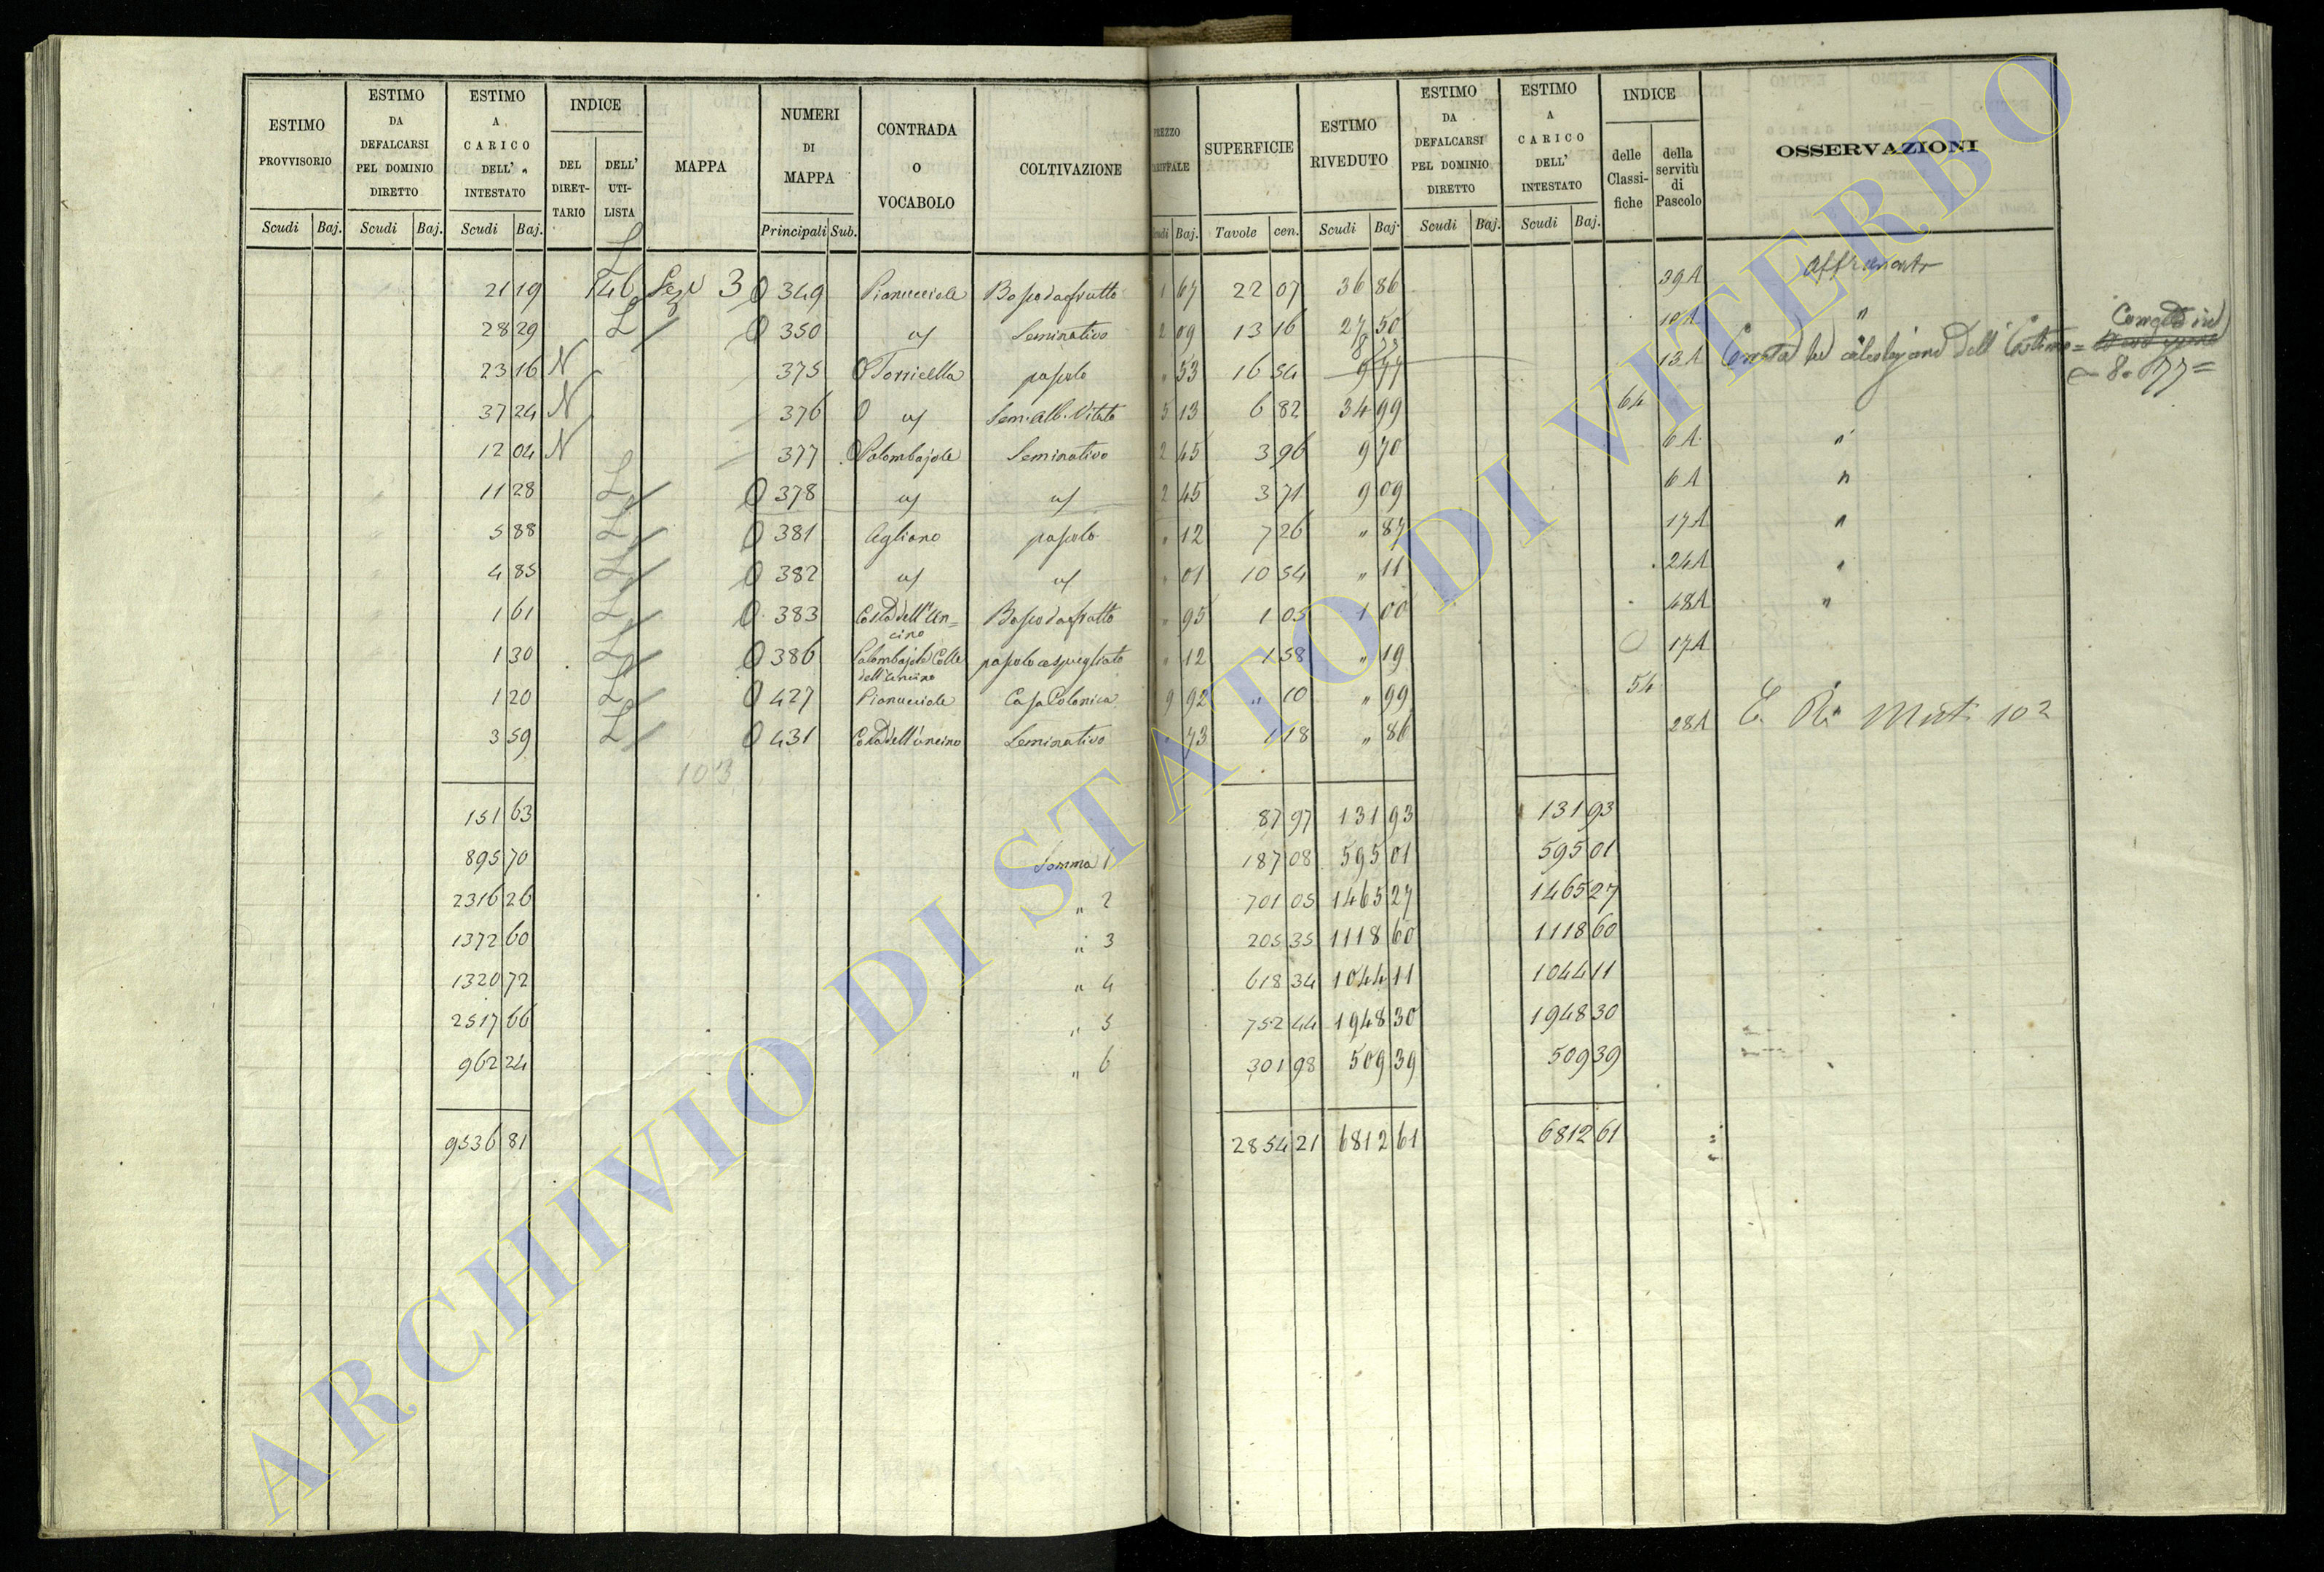 ESTIMO PROVVISORIO | ESTIMO DA DEFALCARSI PEL DOMINIO DIRETTO | ESTIMO A CARICO DELL' INTESTATO | INDICE | MAPPA | NUMERI DI MAPPA | CONTRADA O VOCABOLO | COLTIVAZIONE | SUPERFICIE | ESTIMO RIVEDUTO | ESTIMO DA DEFALCARSI PEL DOMINIO DIRETTO | ESTIMO A CARICO DELL' INTESTATO | INDICE | OSSERVAZIONI
DEL DIRETTARIO | DELL' UTILISTA | delle Classifiche | della servitù di Pascolo
Scudi | Baj. | Scudi | Baj. | Scudi | Baj. | Principali | Sub. | Baj. | Tavole | cen. | Scudi | Baj. | Scudi | Baj. | Scudi | Baj.
21 19 | 3 | 349 | Pianucciole | Bosco da frutto | 1 67 | 22 07 | 36 86 | 39A
28 29 | L | 350 | " | Seminativo | 2 09 | 13 16 | 27 50 | 10A | "
23 16 | N | 375 | Torricella | pascolo | " 53 | 16 54 | 8 77 | 13A
= 8. 77 =
37 24 | N | 376 | " | Sem. alb. Vitato | 5 13 | 6 82 | 34 99 | 64
12 04 | N | 377 | Palombajole | Seminativo | 2 45 | 3 96 | 9 70 | 6A | "
11 28 | L | 378 | " | " | 2 45 | 3 71 | 9 09 | 6A | "
5 88 | L | 381 | Agliano | pascolo | " 12 | 7 26 | " 87 | 17A | "
4 85 | L | 382 | " | " | " 01 | 10 54 | " 11 | 24A | "
1 61 | L | 383 | Costa dell'Uncino | Bosco da frutto | " 95 | 1 05 | 1 00 | 48A | "
1 30 | L | 386 | Palombajole Colle dell'Uncino | pascolo cespugliato | " 12 | 1 58 | " 19 | 17A
1 20 | L | 427 | Pianucciole | Casa Colonica | 9 92 | " 10 | " 99 | 54
3 59 | L | 431 | Costa dell'Uncino | Seminativo | " 73 | 1 18 | " 86 | 28A | 102
103
151 63 | 87 97 | 131 93 | 131 93
895 70 | Somma 1 | 187 08 | 595 01 | 595 01
2316 26 | " 2 | 701 05 | 1465 27 | 1465 27
1372 60 | " 3 | 205 35 | 1118 60 | 1118 60
1320 72 | " 4 | 618 34 | 1044 11 | 1044 11
2517 66 | " 5 | 752 44 | 1948 30 | 1948 30
962 24 | " 6 | 301 98 | 509 39 | 509 39
9536 81 | 2854 21 | 6812 61 | 6812 61
ARCHIVIO DI STATO DI VITERBO